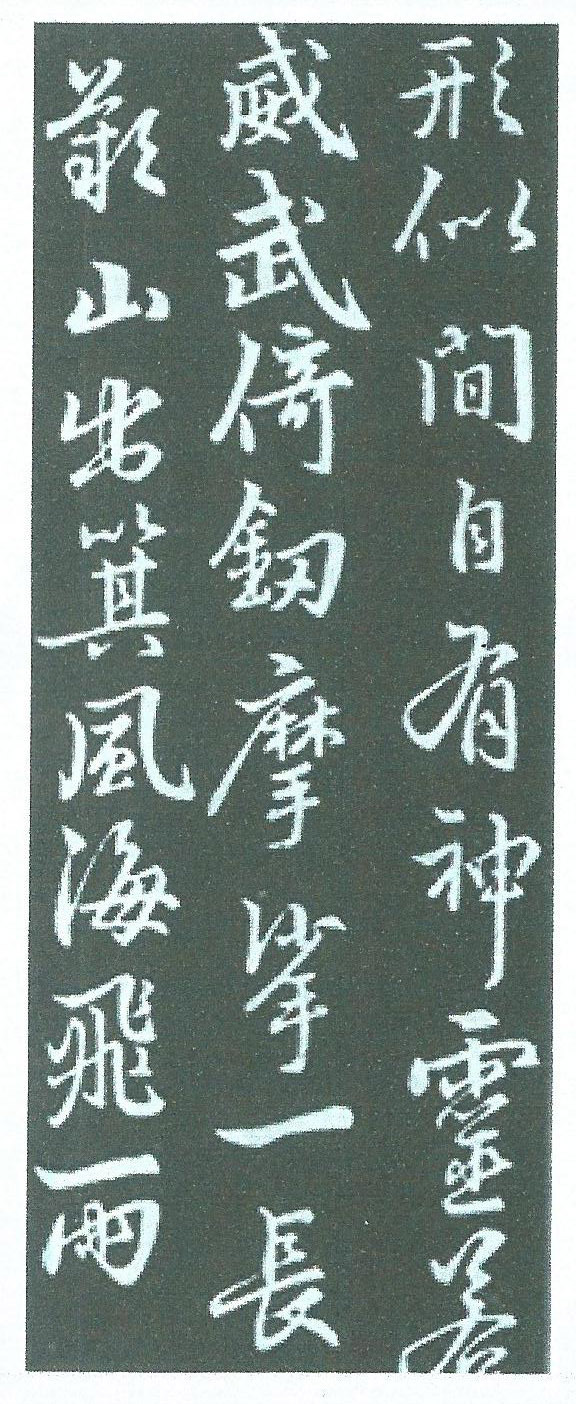 形似間自有神靈著
威武倚劔摩挲一長
歎山出箕風海飛雨